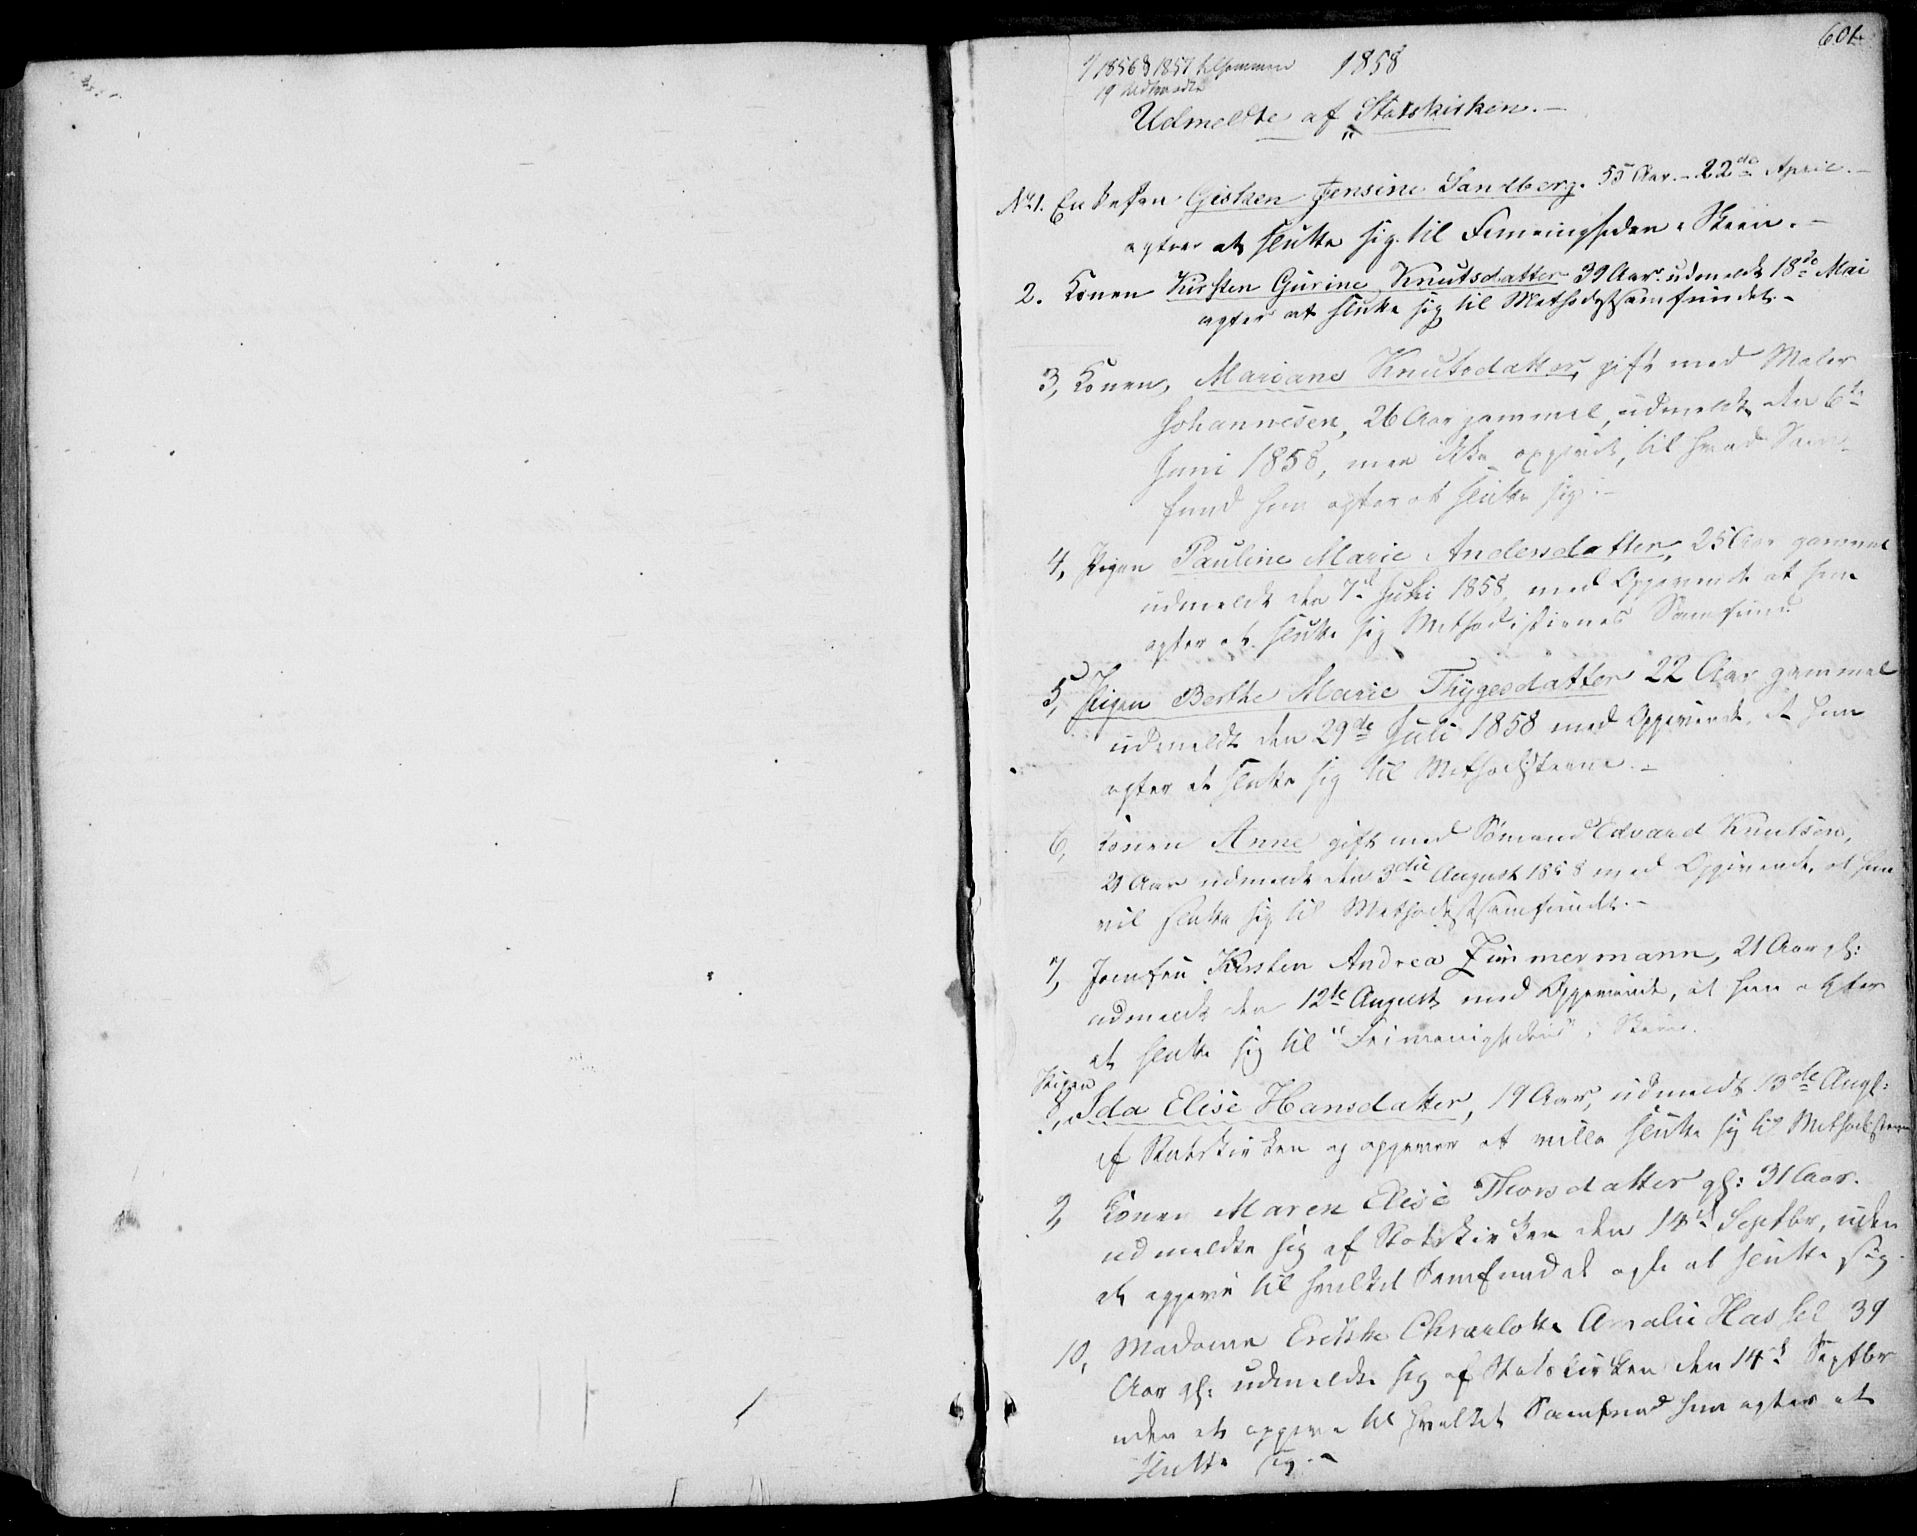 601
1856 & 1857 tilsammen 1858
19 Udmeldte
Udmeldte af Statskirken. –
No 1. Enkefru Gisken Jensine Sandberg. 55 Aar. – 22de April. –
agter at slutte sig til Frimenigheden i Skien. –
2. Konen Kirsten Gurine Knutsdatter 39 Aar. udmeldt 18de Mai
agter at slutte sig til Methodistsamfundet. –
3, Konen, Mariane Knutsdatter, gift med Maler
Johannesen, 26 Aar gammel, udmeldt den 6te
Juni 1858, men ikke opgivet, til hvad Sam-
fund hun agter at slutte sig. –
4, Pigen Pauline Marie Andersdatter, 25 Aar gammel
udmeldt den 7de Juli 1858, med Opgivende at hun
agter at slutte sig Methodisternes Samfund
5, Pigen Berthe Marie Thygesdatter 22 Aar gammel
udmeldt den 29de Juli 1858 med Opgivende, at hun
agter at slutte sig til Methodisterne. –
6, Konen Anne gift med Sømand Edvard Knutsen,
21 Aar udmeldt den 3die August 1858 med Opgivende, at hun
vil slutte sig til Methodistsamfundet. –
7, Jomfru Kirsten Andrea Zimmermann, 21 Aar gl:
udmeldt den 12te August med Opgivende, at hun agter
at slutte sig til "Frimenigheden" i Skien.
Pigen
8, Ida Elise Hansdatter, 19 Aar, udmeldt 13de Augt:
af Statskirken og opgiver at ville slutte sig til Methodisterne
9, Konen Maren Elise Thorsdatter gl: 31 Aar.
udmeldte sig af Statskirken den 14de Septbr, uden
at opgive til hvilket Samfund at agte at slutte sig.
10, Madame Erikke Charlotte Amalie Hassel 39
Aar gl: udmeldte sig af Statskirken den 14de Septbr
uden at opgive til hvilket Samfund hun agter at
slutte sig. –